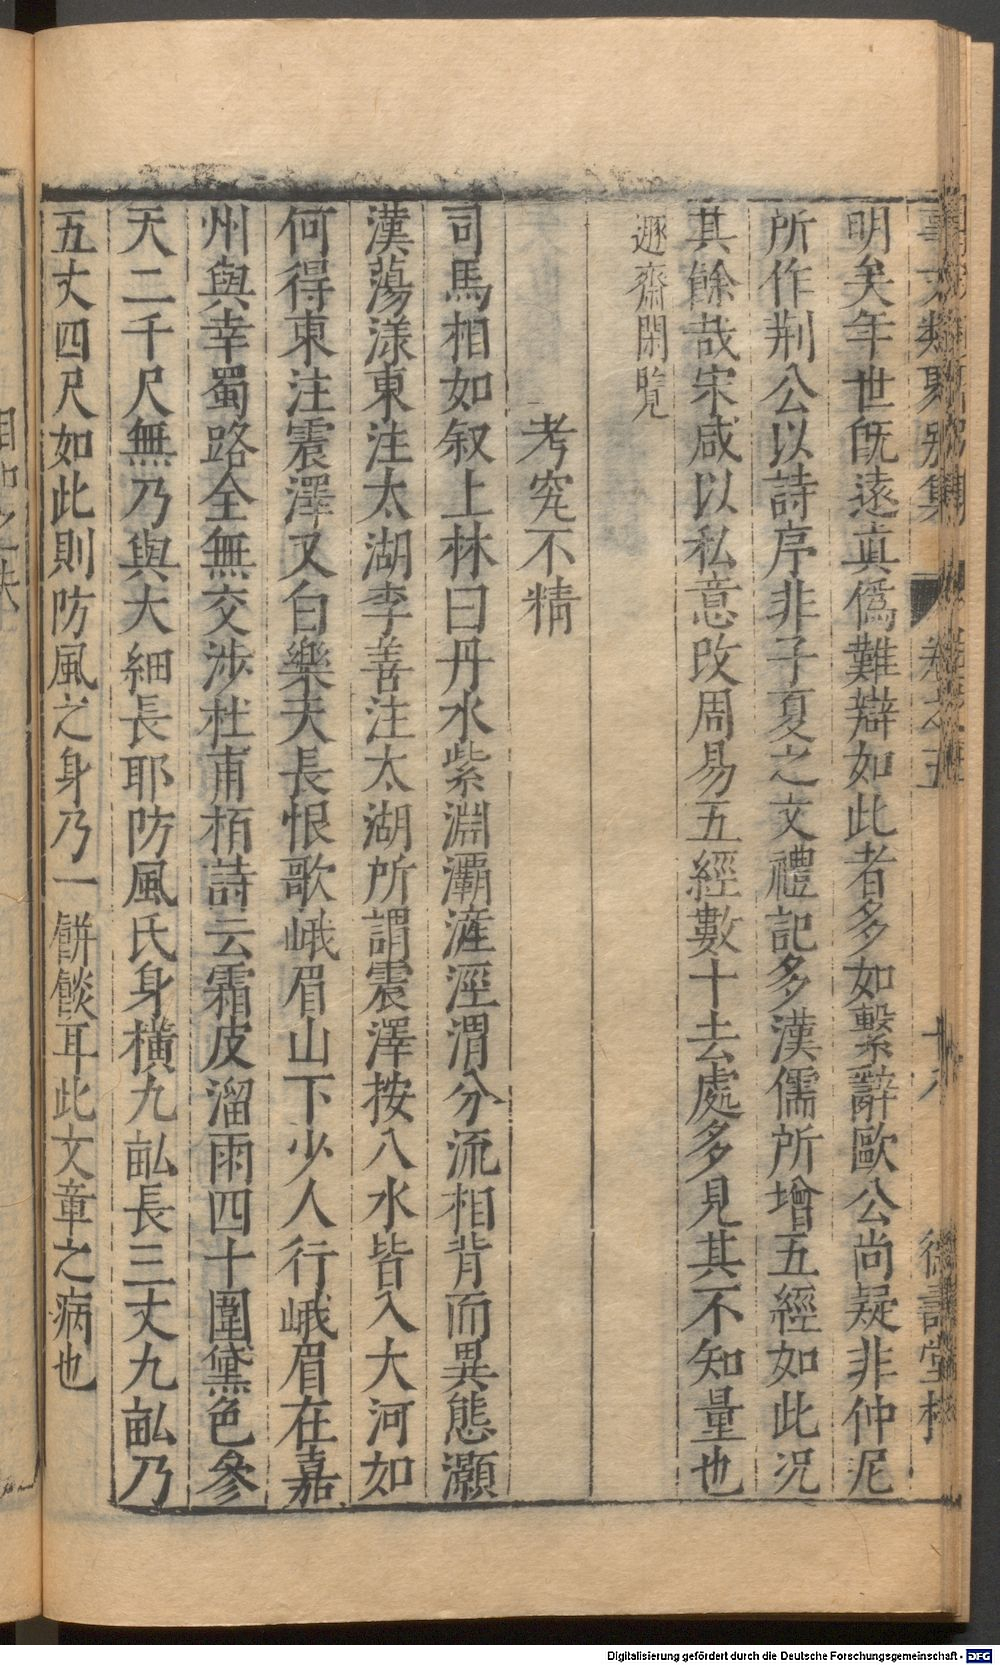 事文類聚別集 卷之五 十八 德壽堂梓
明矣年世旣遠眞僞難辯如此者多如繫辭歐公尚疑非仲尼
所作荆公以詩序非子夏之文禮記多漢儒所增五經如此況
其餘哉宋咸以私意改周易五經數十去處多見其不知量也
遯齋閑覽
考究不精
司馬相如叙上林曰丹水紫淵灞滻涇渭分流相背而異態灝
漢蕩漾東注太湖李善注太湖所謂震澤按八水皆入大河如
何得東注震澤又白樂天長恨歌峨眉山下少人行峨眉在嘉
州與幸蜀路全無交涉杜甫栢詩云霜皮溜雨四十圍黛色參
天二千尺無乃與大細長耶防風氏身橫九畝長三丈九畝乃
五丈四尺如此則防風之身乃一餅餤耳此文章之病也
Digitalisierung gefördert durch die Deutsche Forschungsgemeinschaft - DFG